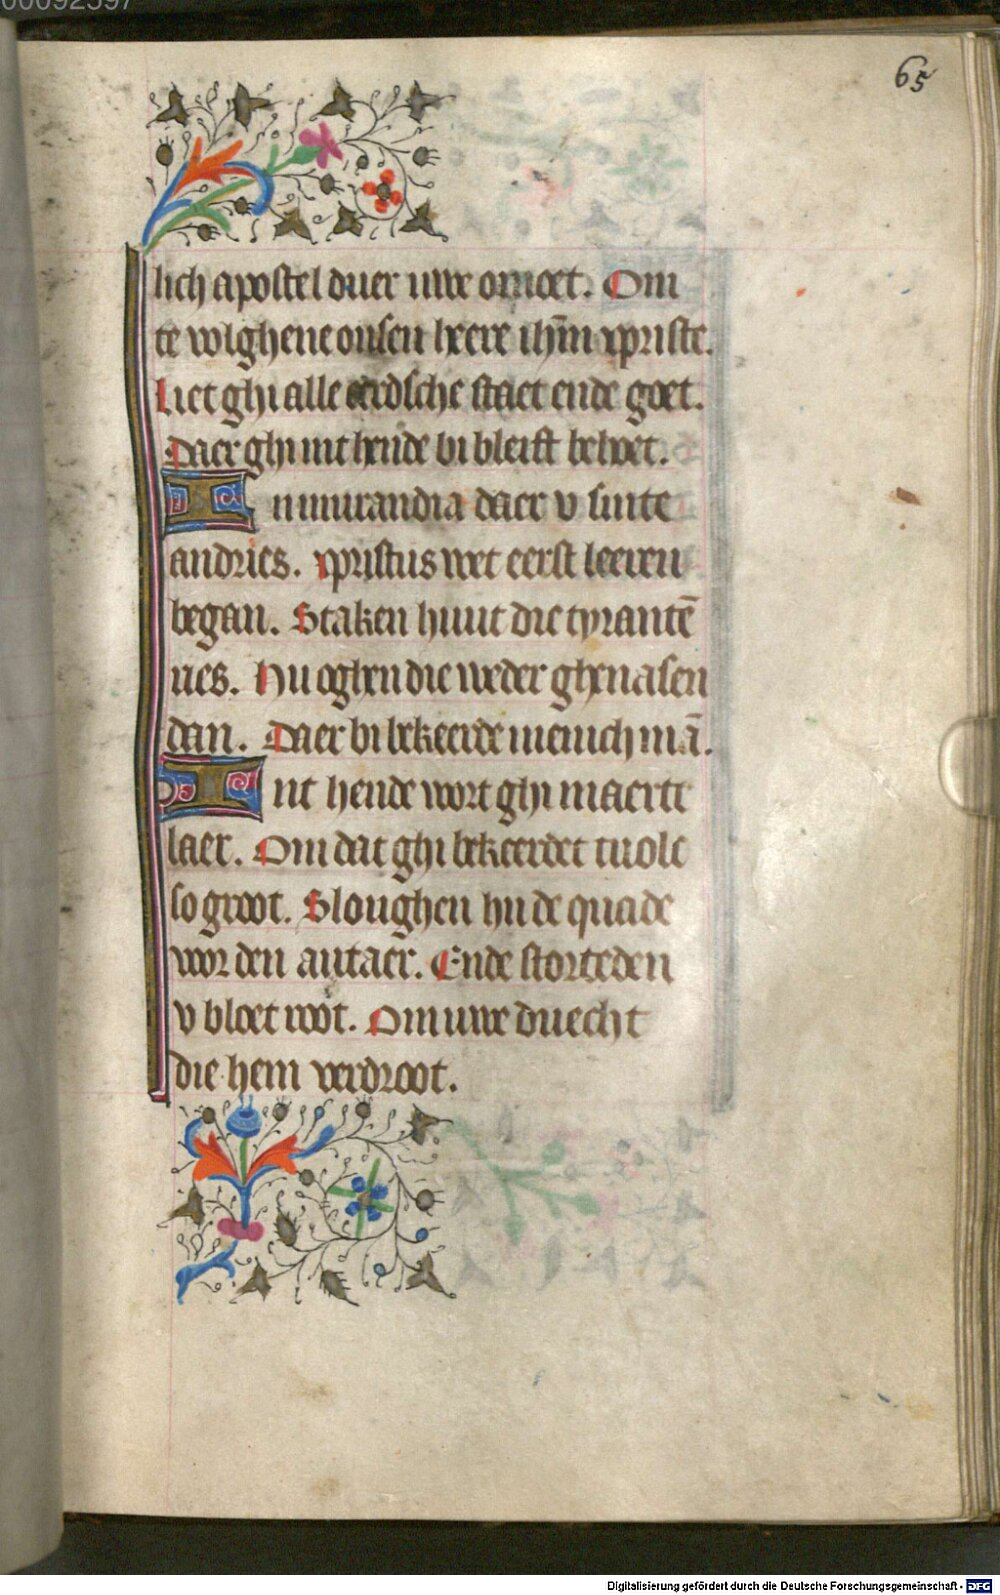 65
lich apostel duer uwe omoet. Om
te volghene onsen heere ihm̄ xpriste.
Liet ghi alle eerdsche staet ende goet.
Daer ghi int hende bi bleift behoet.
In mirandia daer v sinte
andries. xpristus wet eerst leeren
began. Staken huut die tyrantē
ries. Hu oghen die weder ghenasen
dan. Daer bi bekeerde menich mā.
Int hende wort ghi maerte
laer. Om dat ghi bekeerdet tvolc
so groot. Sloughen hu de quade
voor den autaer. Ende storteden
v bloet root. Om uwe duecht
die hem verdroot.
Digitalisierung gefördert durch die Deutsche Forschungsgemeinschaft - DFG